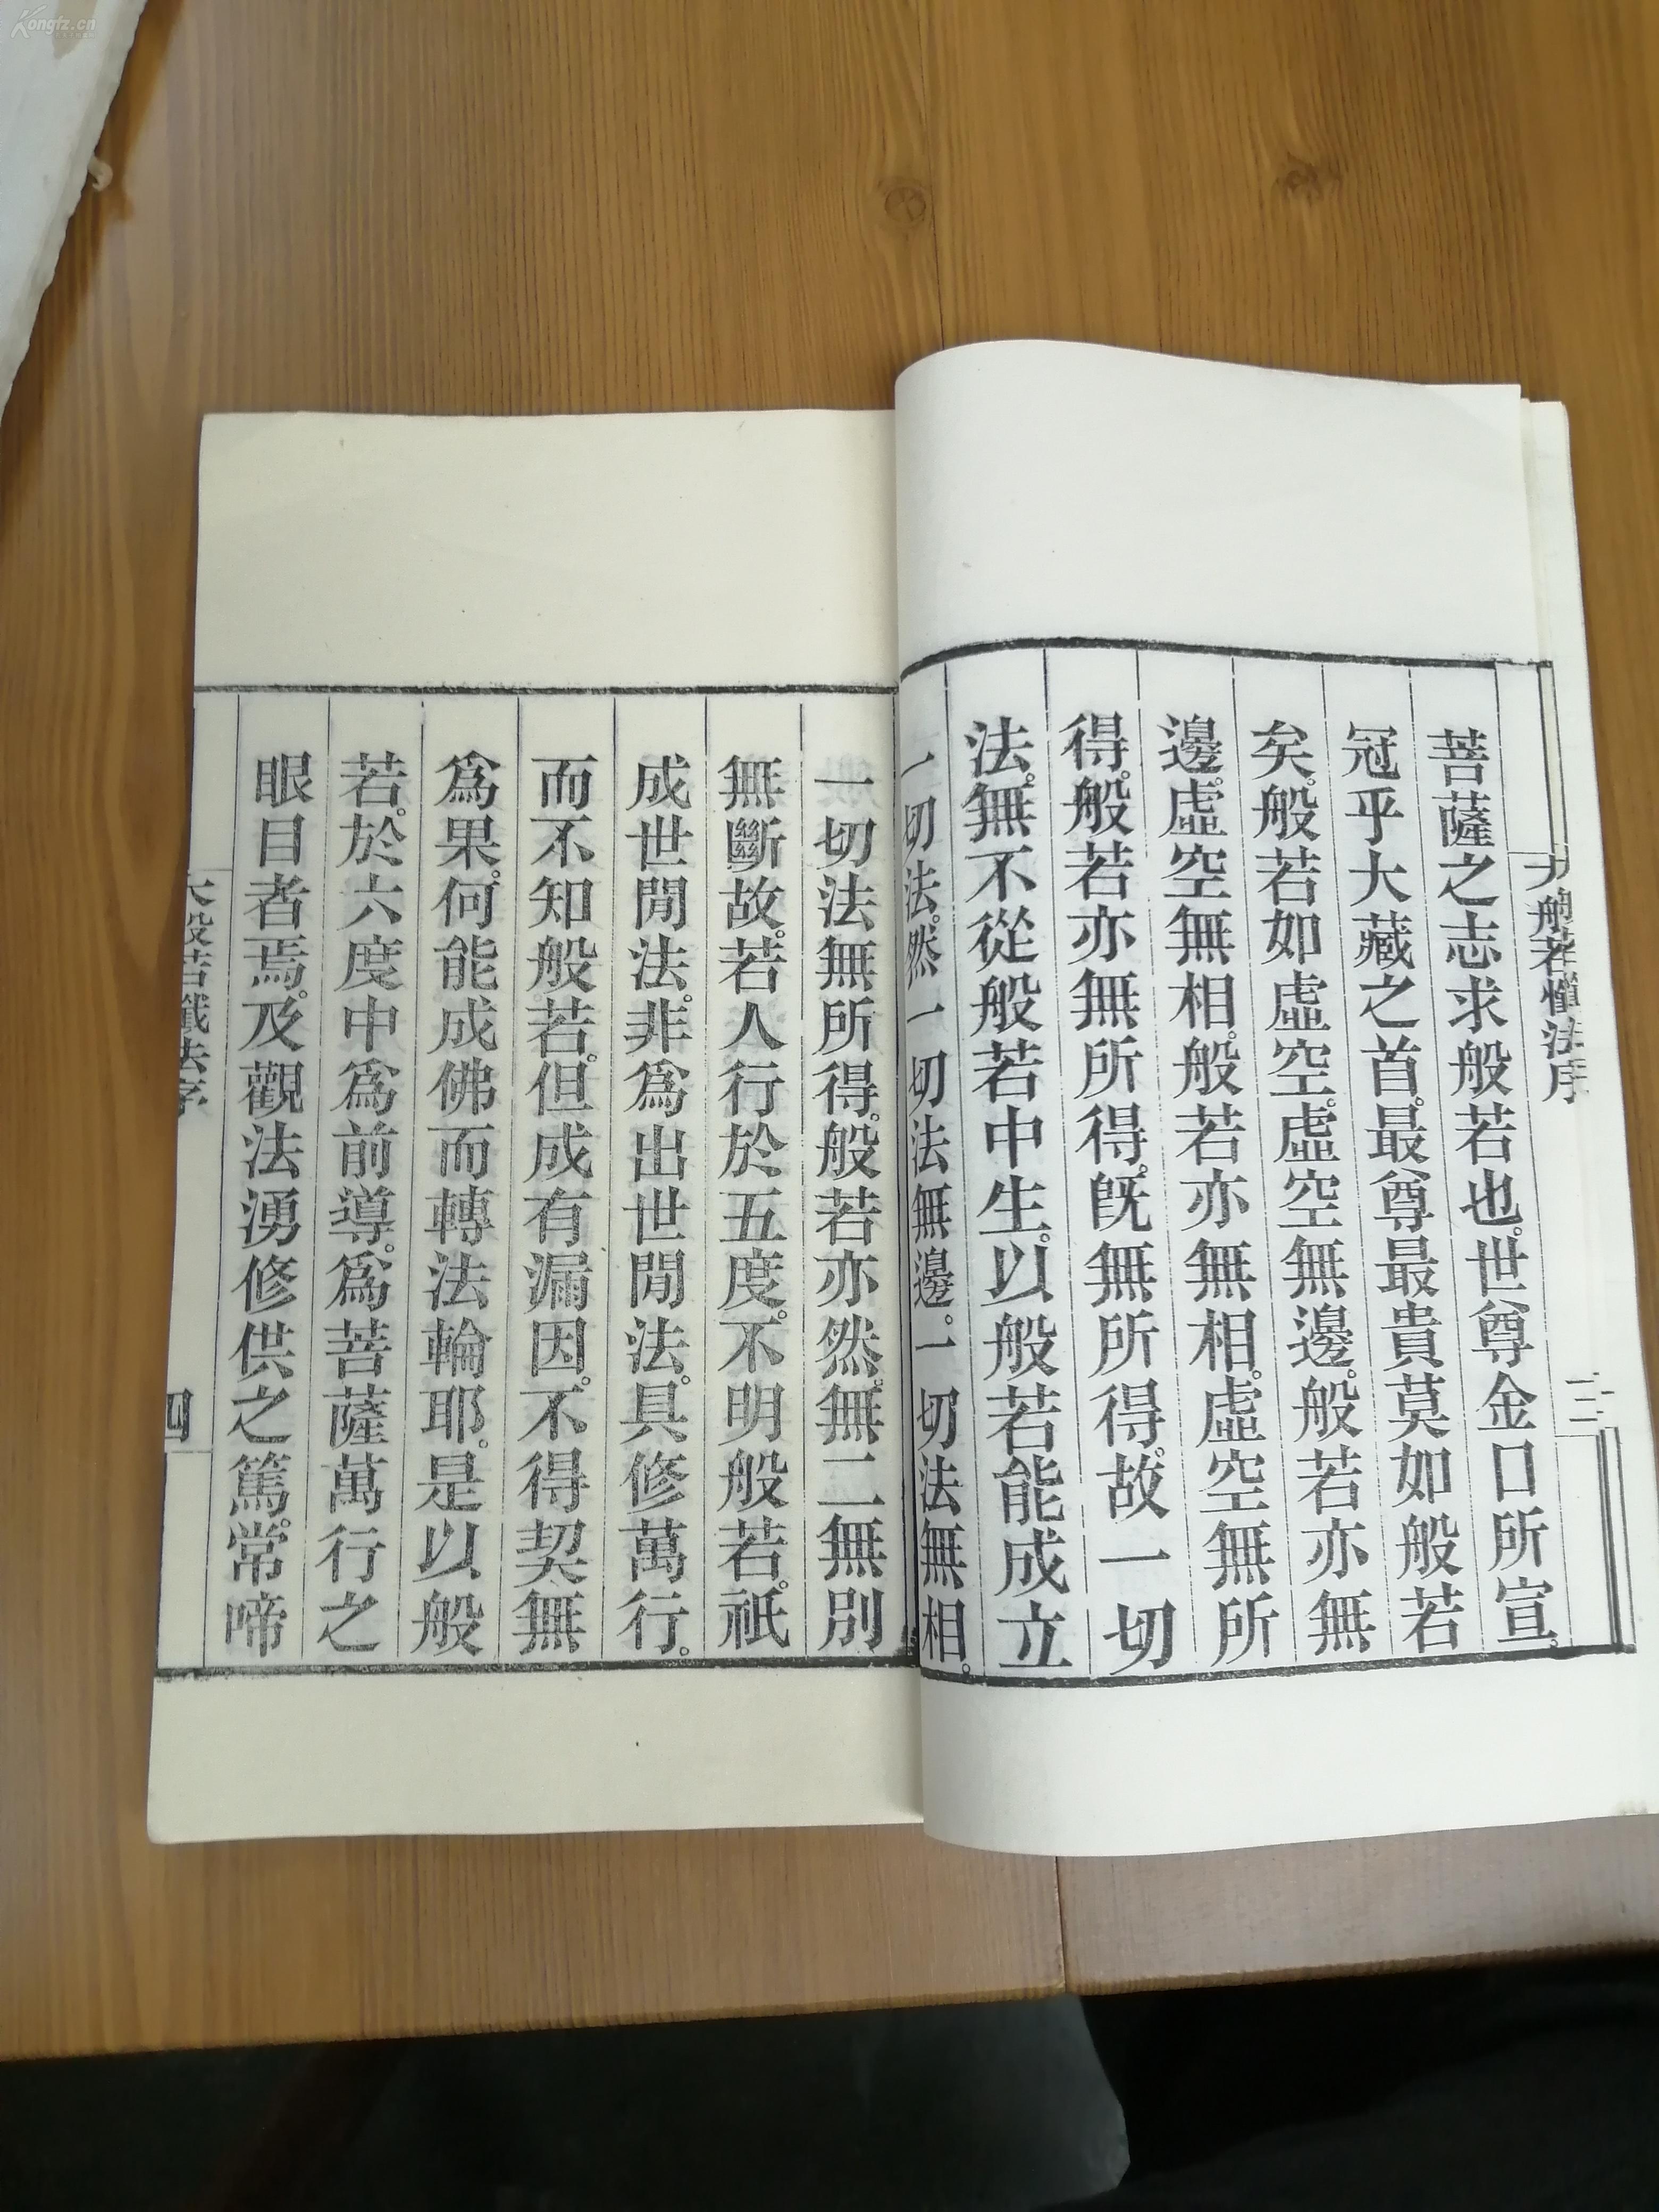 Kongfz.cn
大般若懺法序
三
菩薩之志求般若也。世尊金口所宣。
冠乎大藏之首。最尊最貴莫如般若
矣。般若如虛空。虛空無邊。般若亦無
邊。虛空無相。般若亦無相。虛空無所
得。般若亦無所得。旣無所得。故一切
法。無不從般若中生。以般若能成立
一切法。然一切法無邊。一切法無相。
一切法無所得。般若亦然。無二無別
無斷故。若人行於五度。不明般若。祇
成世閒法。非爲出世閒法。具修萬行。
而不知般若。但成有漏因。不得契無
爲果。何能成佛而轉法輪耶。是以般
若。於六度中爲前導。爲菩薩萬行之
眼目者焉。及觀法湧修供之篤。常啼
大般若懺法序
四